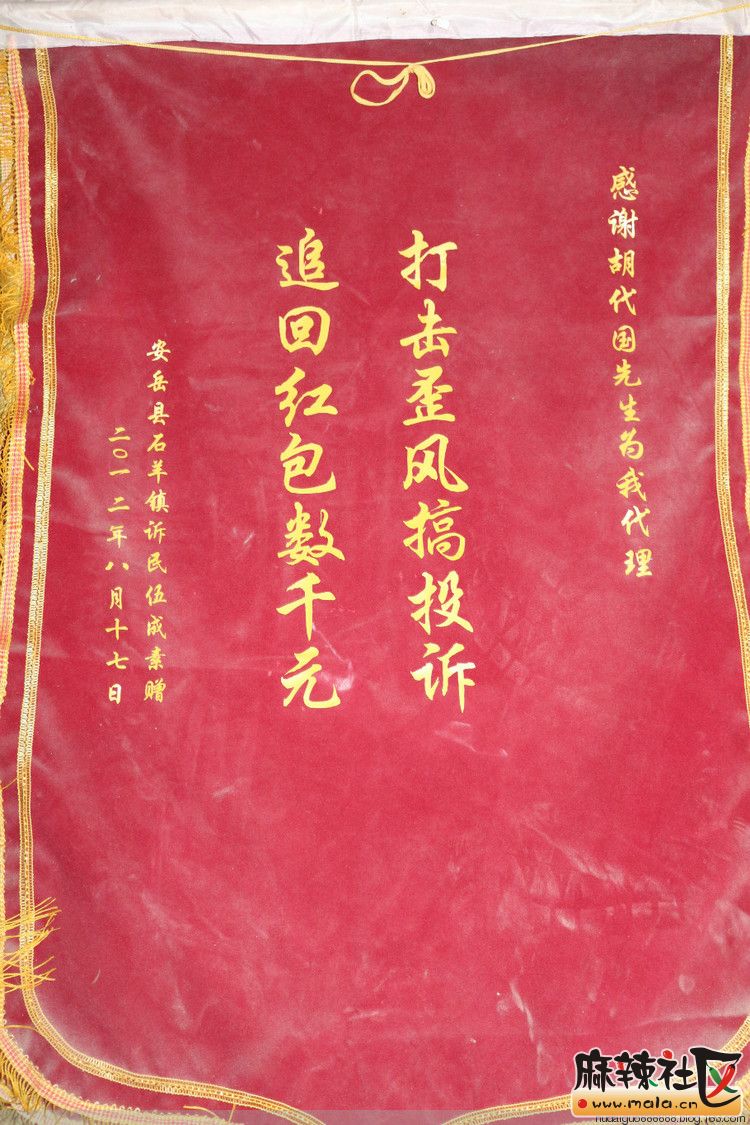 感谢胡代国先生为我代理
打击歪风搞投诉
追回红包数千元
安岳县石羊镇诉民伍成素赠
二〇一二年八月十七日
麻辣社区
www.mala.cn
hudaiguo888888.blog.163.com